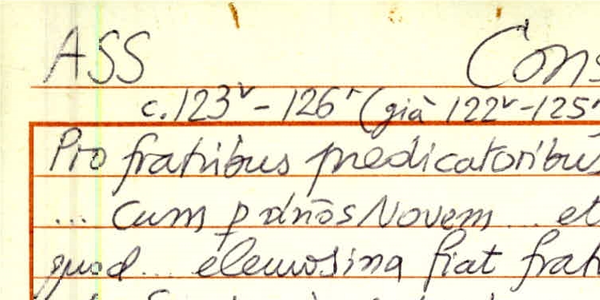 ASS Cons
c. 123v - 126r (già 122v - 125
Pro fratribus predicatoribus
... Cum p dnōs Novem ... et
quod ... elemosina fiat frat